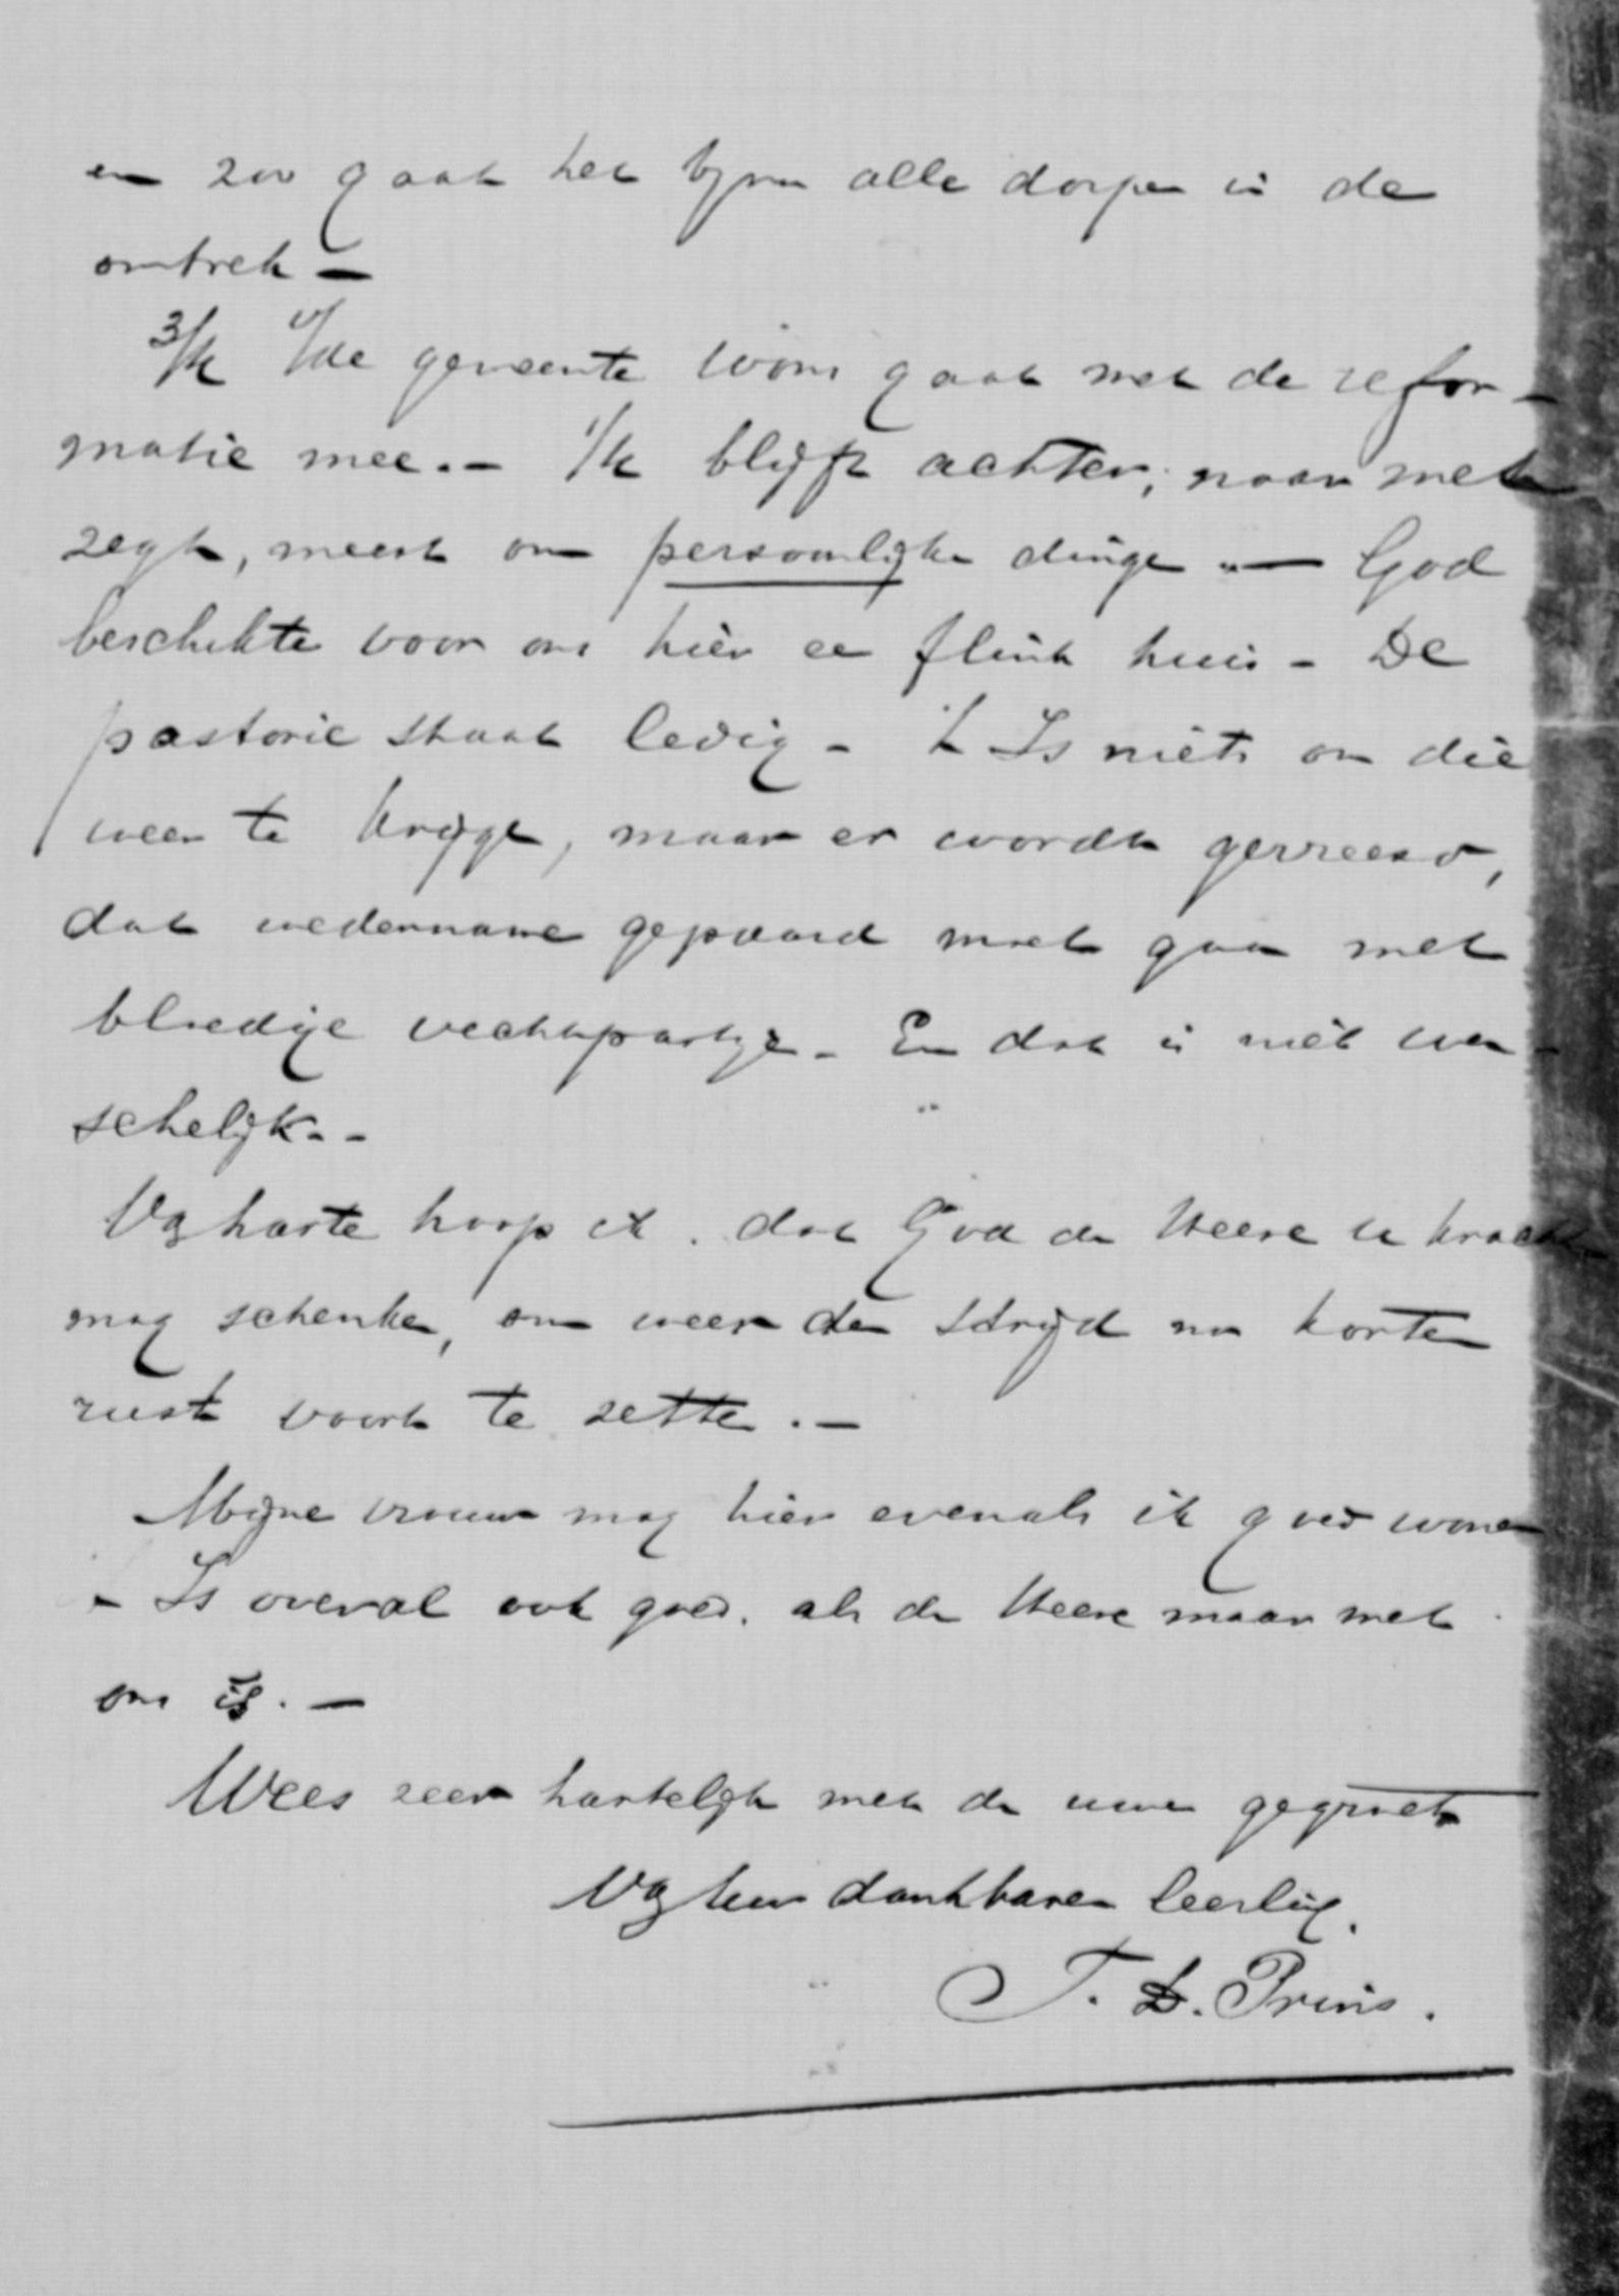 en zoo gaat het bijna alle dorpen in de
omtrek —
3/4 v/de gemeente Wons gaat met de refor-
matie mee. — 1/4 blijft achter, naar men
zegt, meest om persoonlijke dingen. — God
beschikte voor ons hier een flink huis — De
pastorie staat ledig — 't Is niets om die
weer te krijgen, maar er wordt gevreesd,
dat wedername gepaard moet gaan met
bloedige vechtpartijen — En dat is niet wen-
schelijk. -
Van harte hoop ik, dat God de Heere u kracht
mag schenken, om weer den strijd na korten
rust voort te zetten. —
Mijne vrouw mag hier evenals ik goed wonen
- Is overal ook goed, als de Heere maar met
ons is. —
Wees zeer hartelijk met de uwen gegroet
Van Uw dankbaren leerling.
T. D. Prins.